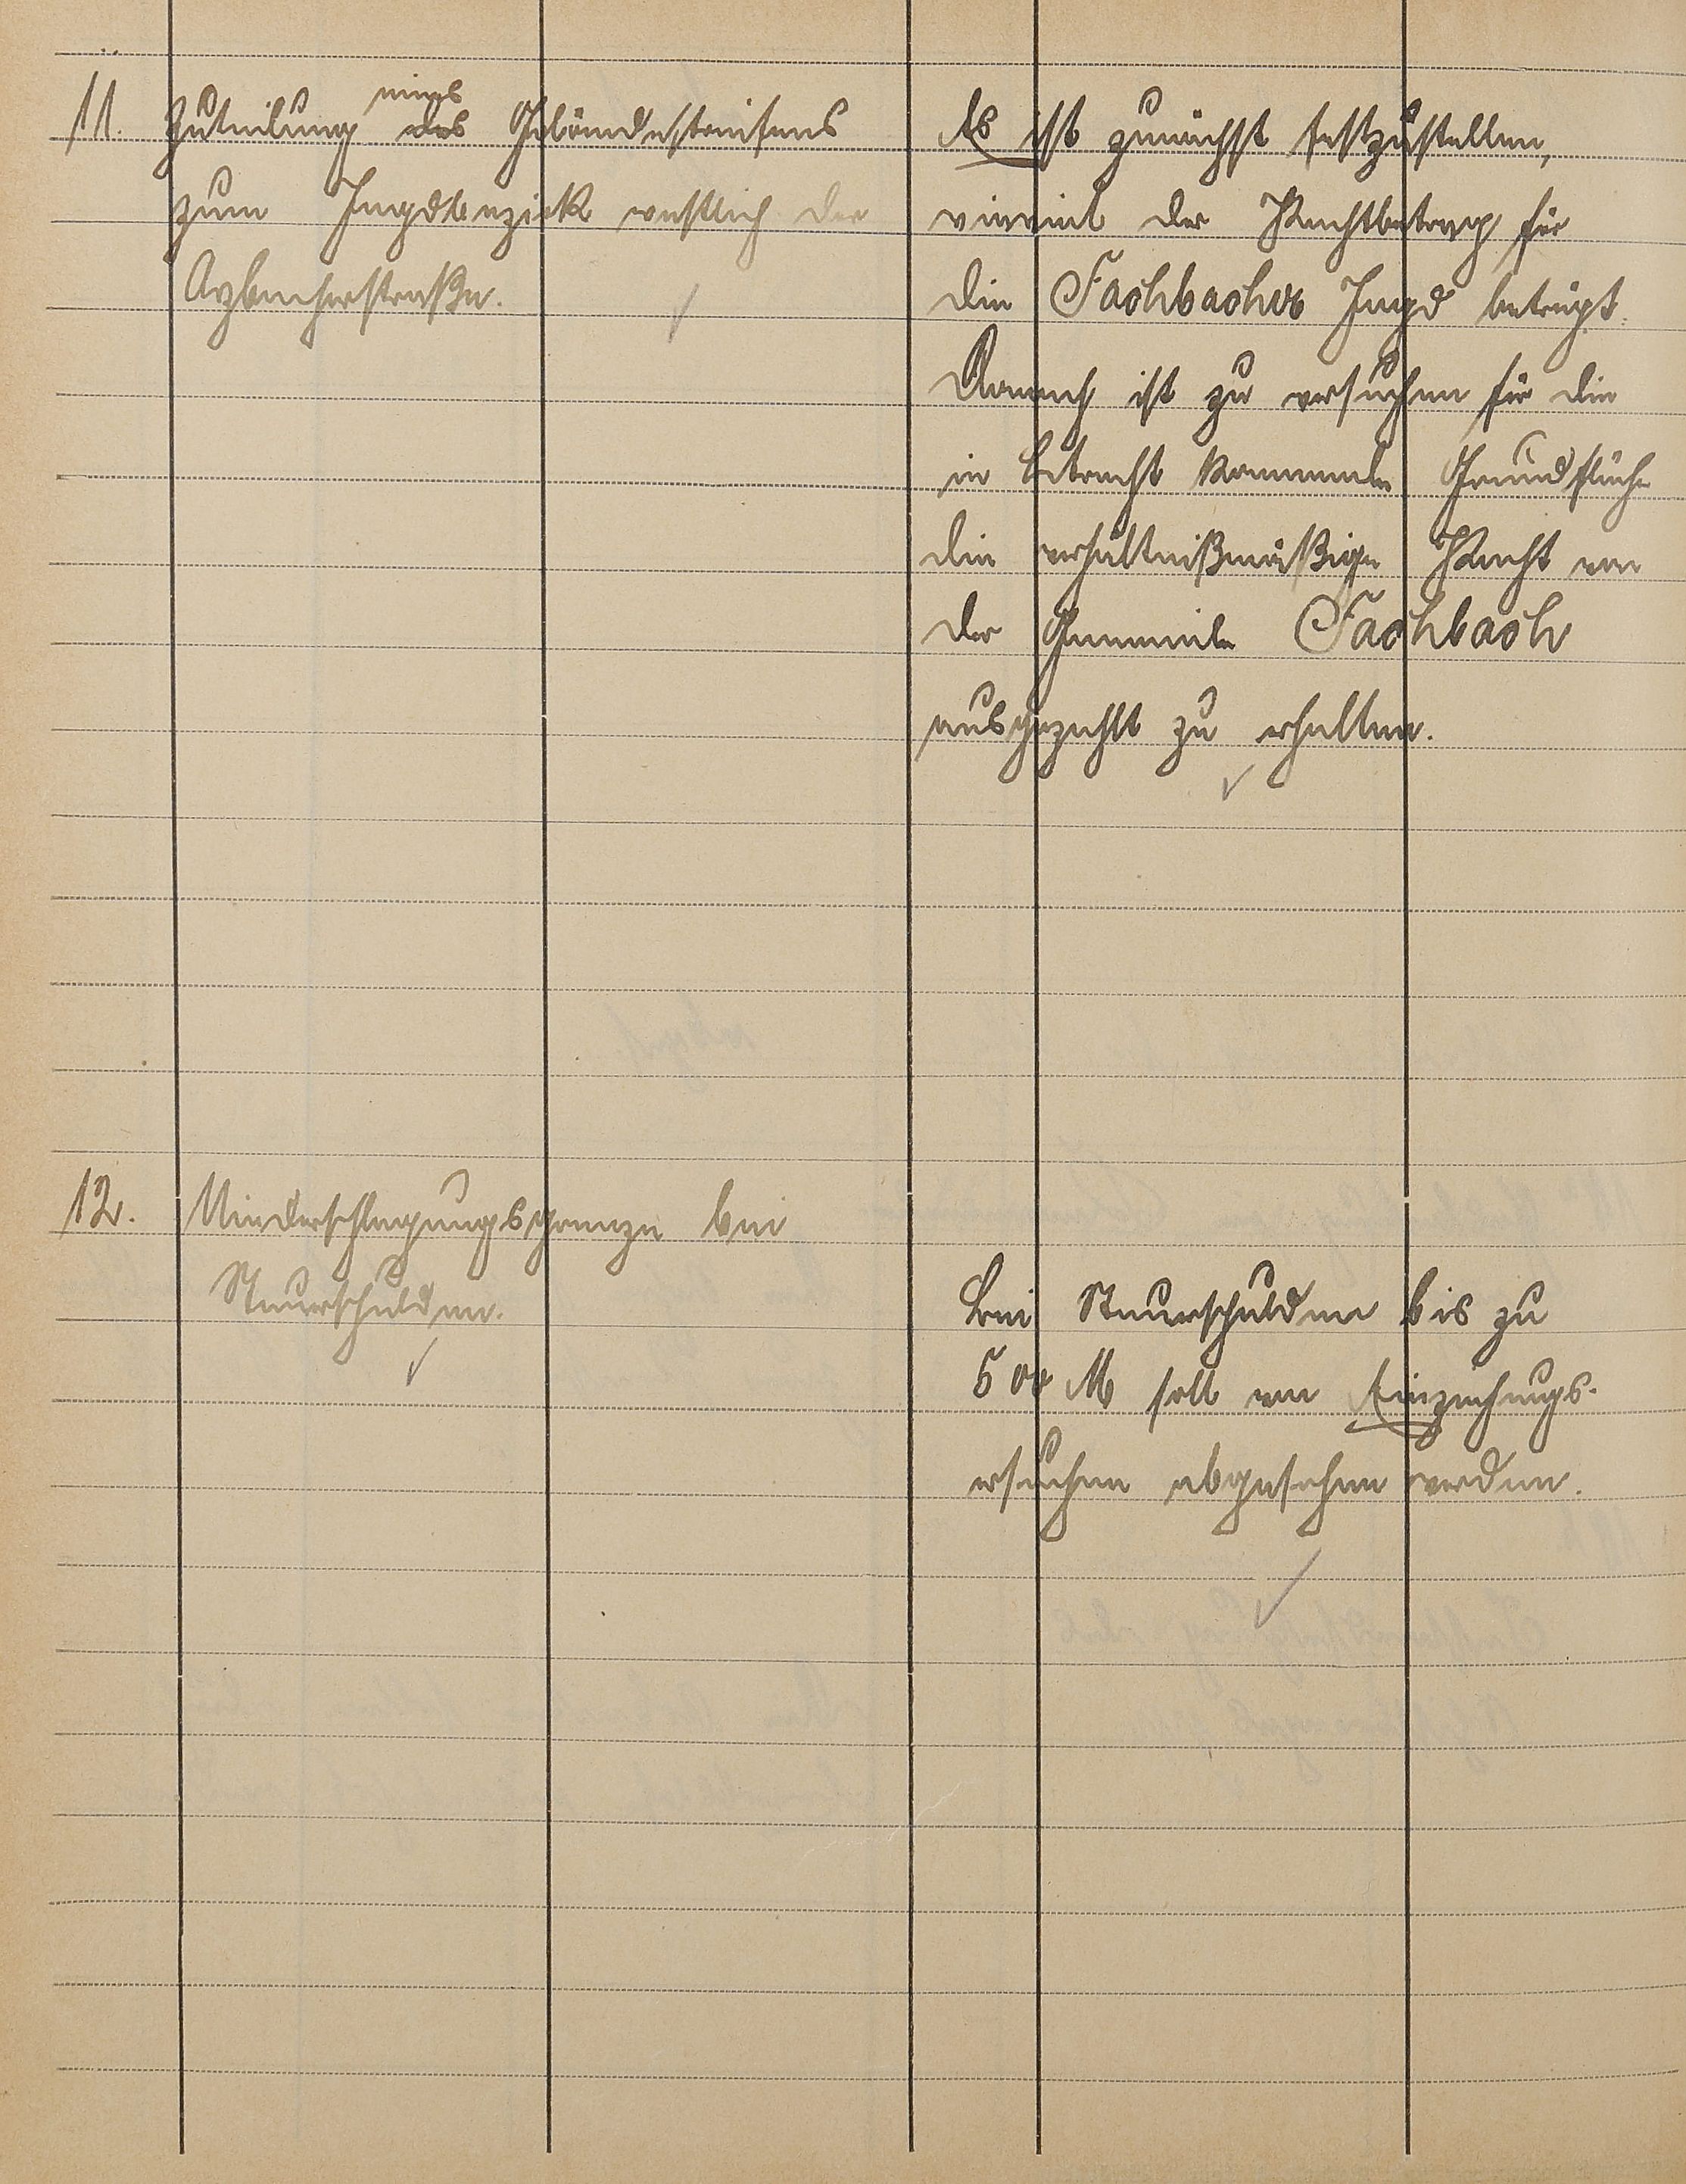 11. Zuteilung des eines Geländestreifens
zum Jagdbezirk westlich der
Arzbacherstraße.
Es ist zunächst festzustellen,
wieviel der Pachtbetrag für
die Fachbacher Jagd beträgt.
Danach ist zu versuchen für die
in Betracht kommende Grundfläche
die verhältnißmäßige Pacht von
der Gemeinde Fachbach
ausgezahlt zu erhalten.
12. Niederschlagungsgrenze bei
Steuerschulden.
Bei Steuerschulden bis zu
500 M soll von Einziehungs-
ersuchen abgesehen werden.